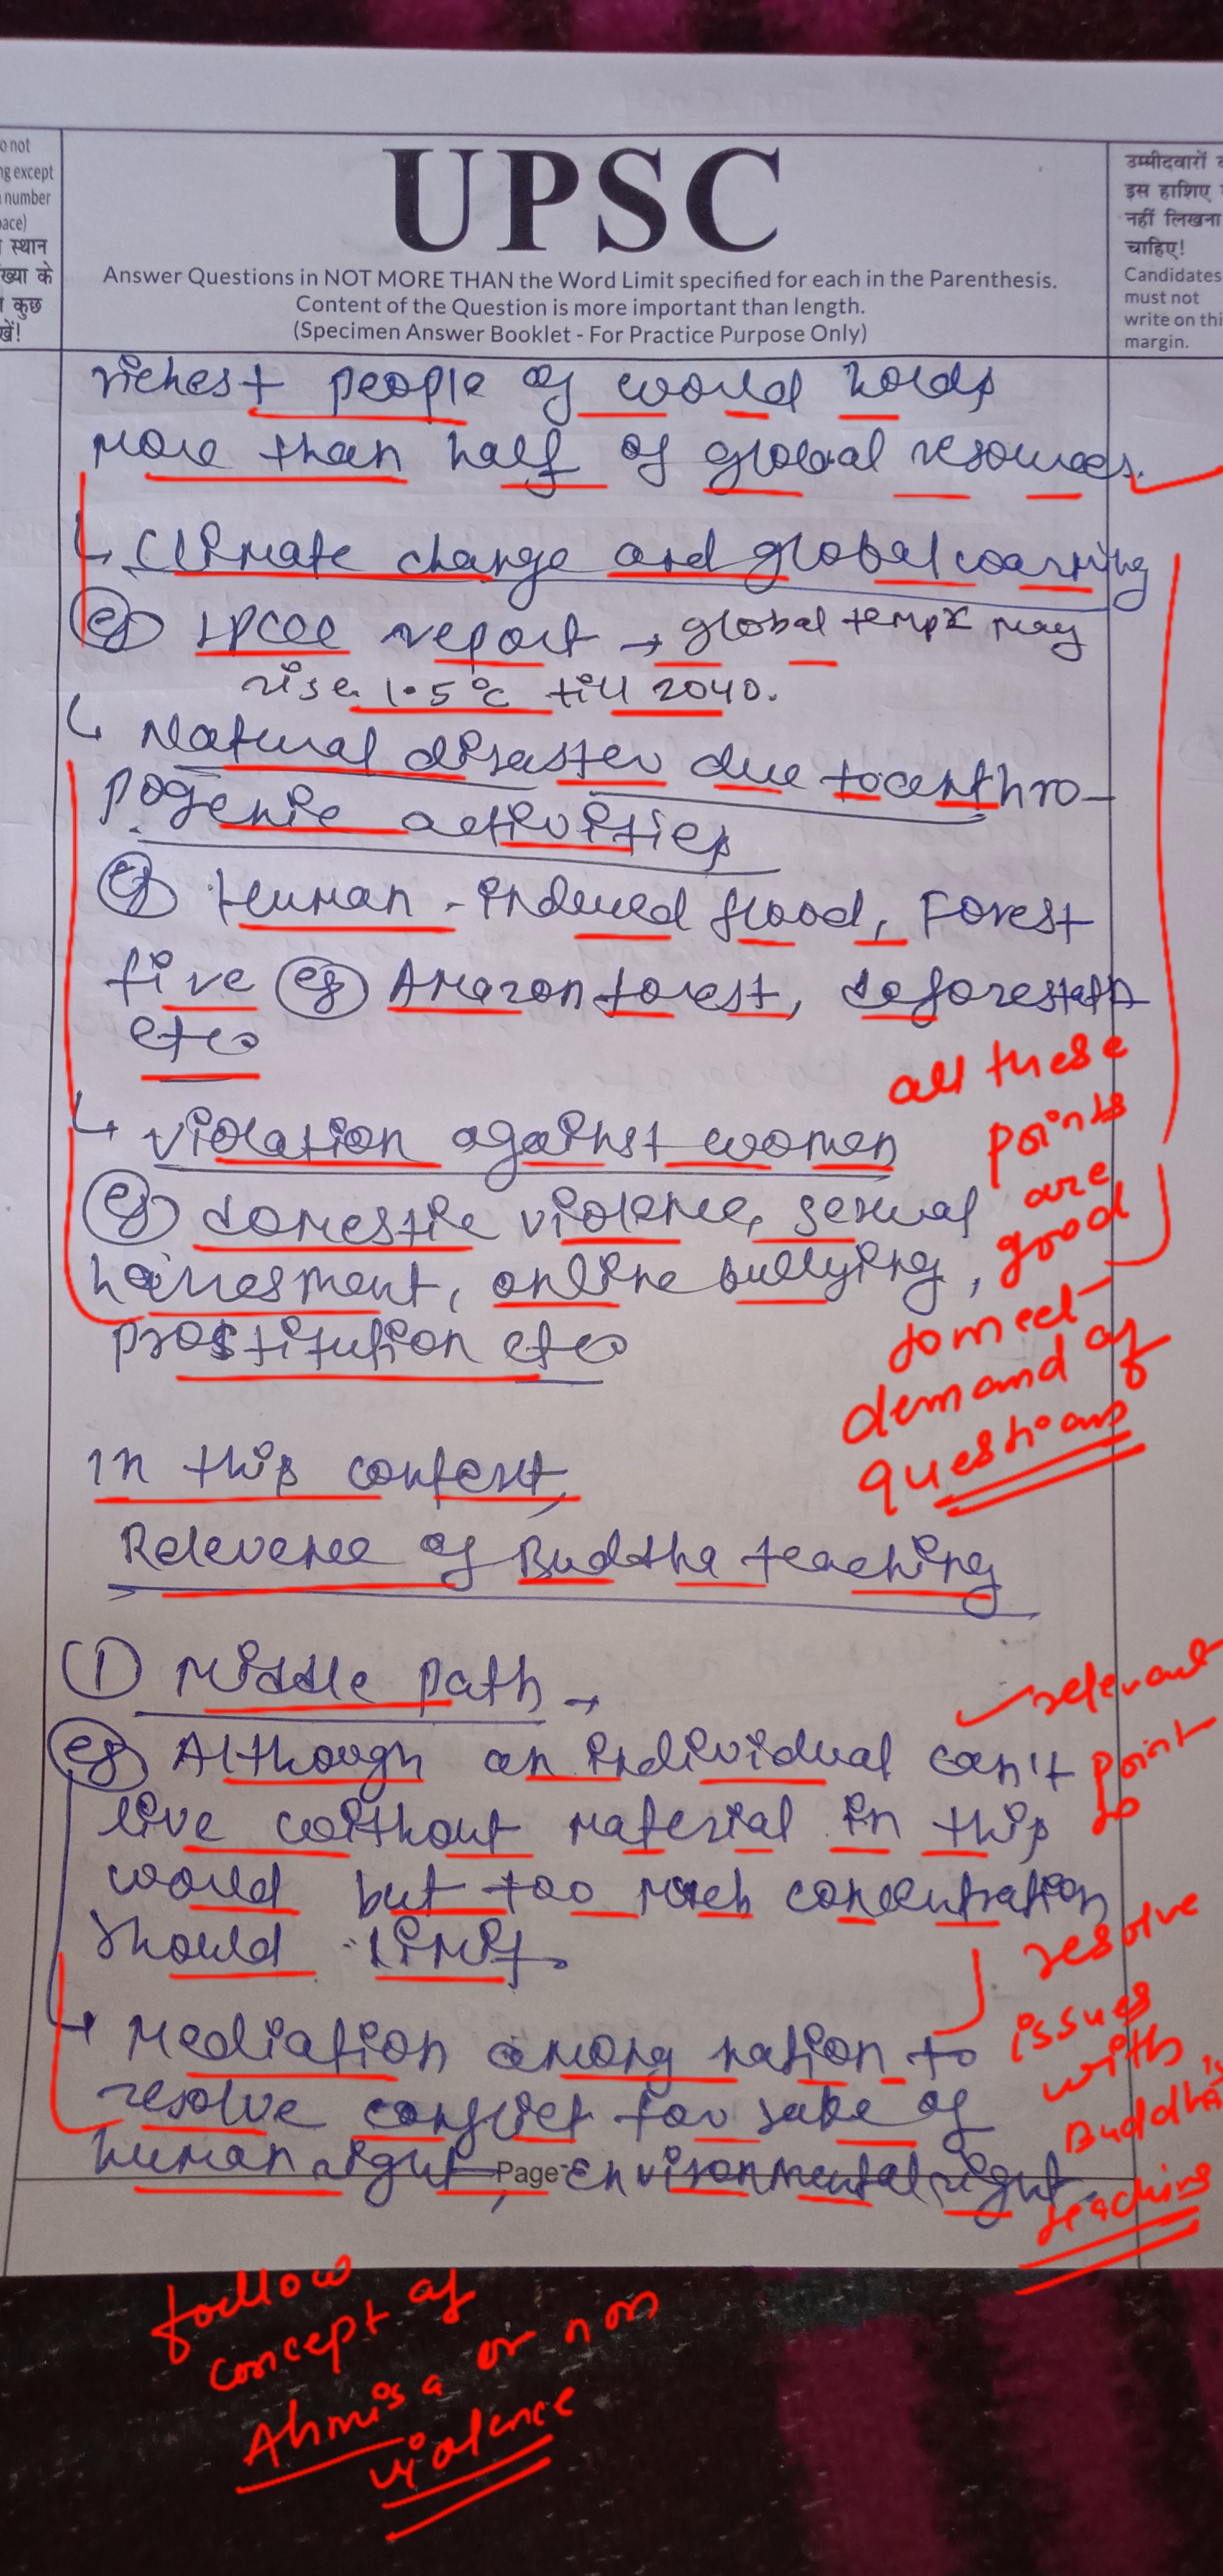 o not
ng except
number
pace)
स्थान
ख्या के
कुछ
खें!
UPSC
Answer Questions in NOT MORE THAN the Word Limit specified for each in the Parenthesis.
Content of the Question is more important than length.
(Specimen Answer Booklet - For Practice Purpose Only)
उम्मीदवारों
इस हाशिए
नहीं लिखना
चाहिए!
Candidates
must not
write on thi
margin.
richest people of world holds
more than half of global resources.
↳ Climate change and global warming
eg IPCC report → global temp may
rise 1.5°C till 2040.
↳ Natural disaster due to anthro-
pogenic activities
eg Human-induced flood, Forest
fire eg Amazon forest, deforestatn
etc
↳ violation against women
eg domestic violence, sexual
harresment, online bullying,
prostitution etc
all these
points
are
good
to meet
demand of
questions
In this context,
Relevence of Buddha teaching
① Middle path →
eg Although an individual can't
live without material in this
world but too much concentration
should limit.
↳ Mediation among nation to
resolve conflict for sake of
human right, environmental right.
Page
relevant
point
to
resolve
issues
with
Buddhis
teachins
follow
concept of
Ahmisa or non
violence